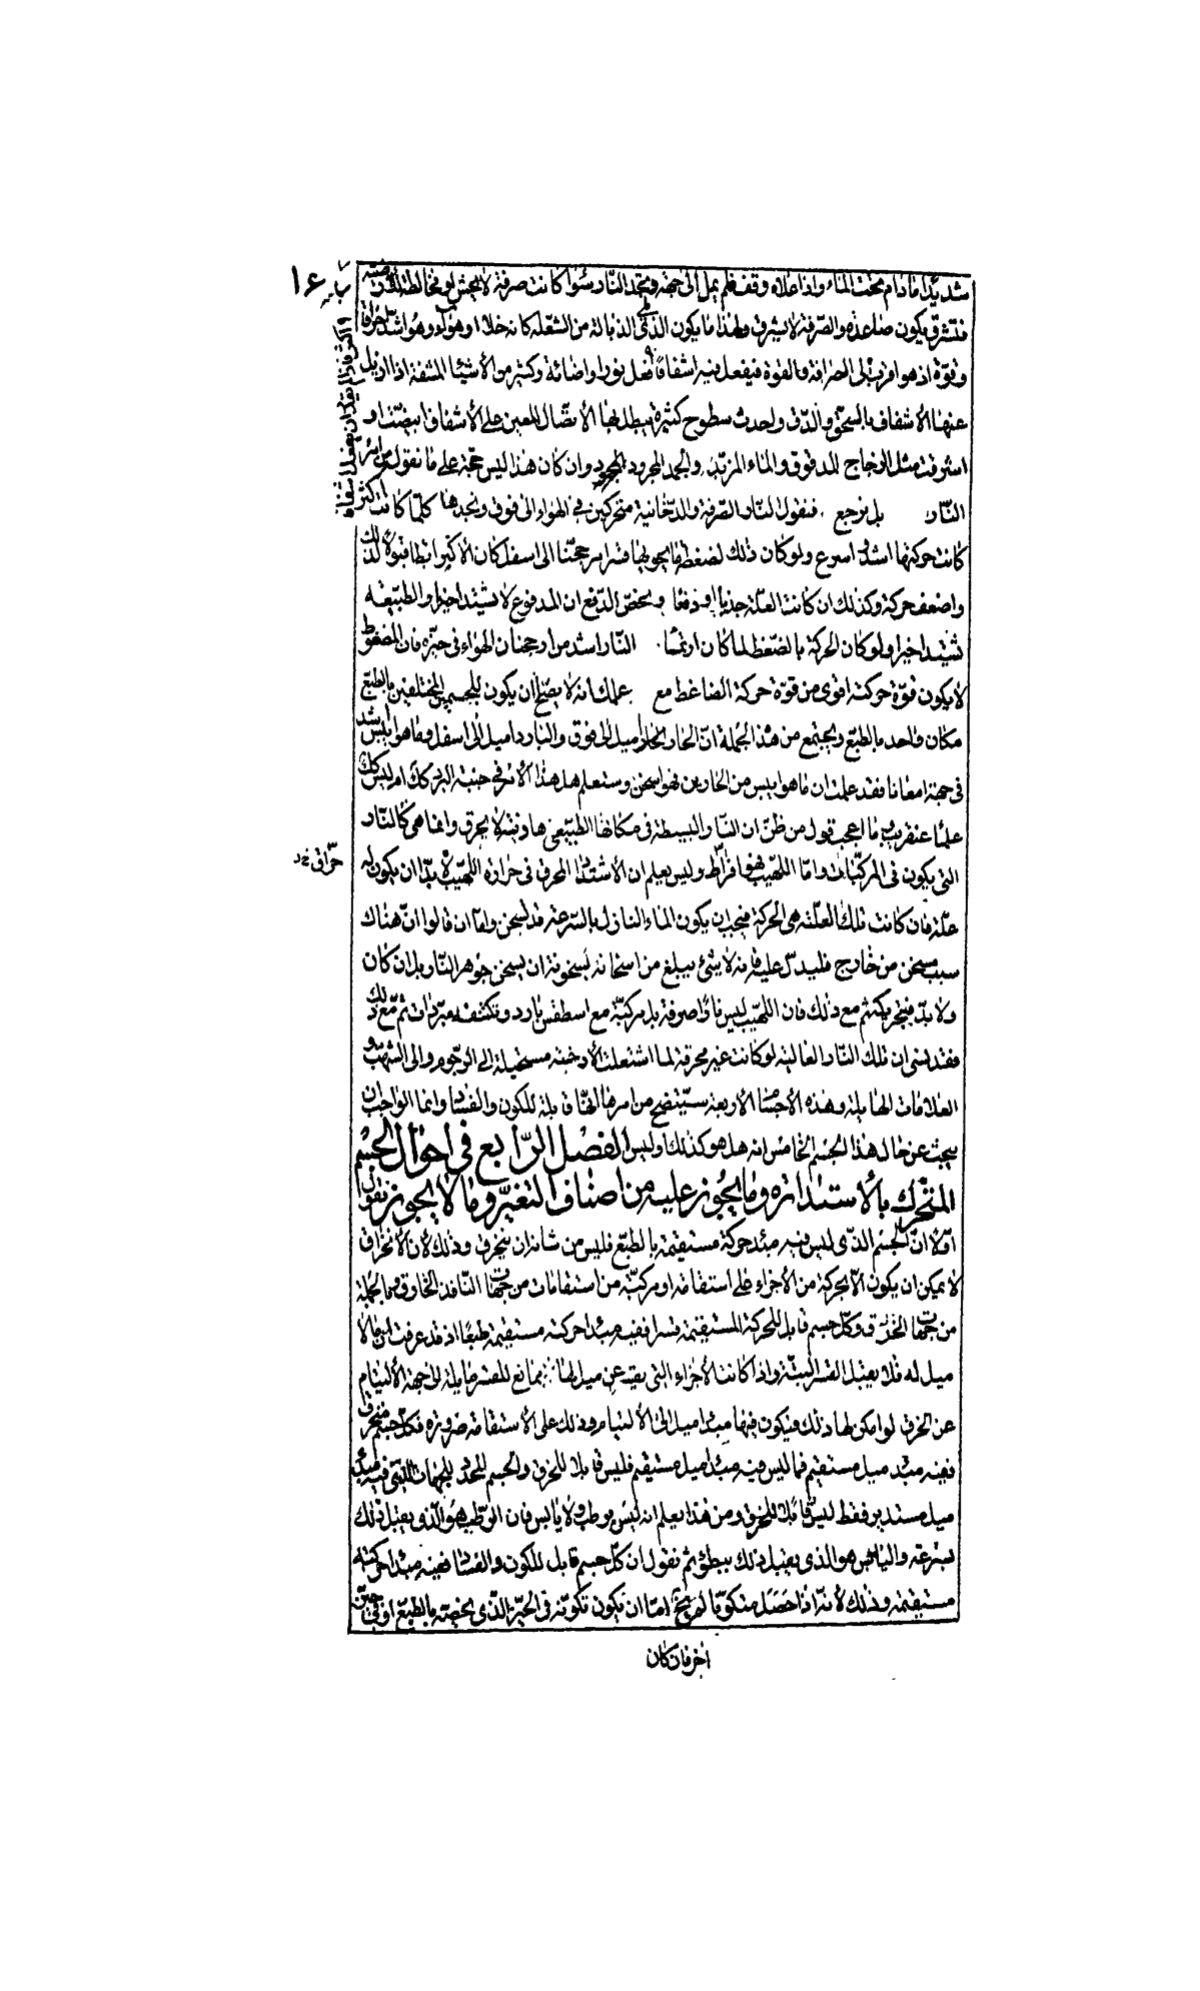 شديدا مادام تحت الماء واذا علاه وقف فلم يمل الى خفة ونجد النار سواء كانت صرفة لا يحس لو مخالطة لأرضية
فتشرق يكون صاعدة والصرفة لا تشرق ولهذا ما يكون الذى على الذبالة من الشعلة كانه خلاء او هواء وهو اشد احراقا
وقوة اذ هو اقرب الى الصرافة والقوة فيفعل فيه اشفافا لا نفعل نورا واضاءة وكثير من الأشياء المشفة اذا ازيل
عنها الأشفاف بالسحق والدق ولحدث سطوح كثيرة يبطل بها الاتصال المعين على الأشفاف ابيضت او
اشرقت مثل الزجاج المدقوق والماء المزبد والجمد المجرود وان كان هذا ليس حجة على ما نقول من امر
النار بل نرجع فنقول النار الصرفة والدخانية متحركتين فى الهواء الى فوق ونجدها كلما كانت اكثر
كانت حركتها اشد اسرع ولو كان ذلك لضغط ما يحويها قسرا مرجحنا الى اسفل كان الأكبر ابطا قبولا لذلك
واضعف حركة وكذلك ان كانت العلة جذبا او دفعا ويخص الدفع ان المدفوع لا يشتد اخيرا والطبيعية
تشتد اخيرا ولو كان الحركة بالضغط لما كان النار اشد من ارجحنان الهواء فى حيزه فان المضغوط
لا يكون قوة حركته اقوى من قوة حركة الضاغط مع علمك انه لا يصلح ان يكون للجسمين المختلفين بالطبع
مكان واحد بالطبع ويجتمع من هذا الجملة ان الحار اميل الى فوق والبارد اميل الى اسفل وما هو ايبس اشد
فى جهته امعانا فقد علمت ان ما هو ايبس من الحارين فهو اسخن وستعلم هل هذا الأمر فى جنبة البرد كك ام ليس كك
علما عن قريب وما اعجب قول من ظن ان النار البسيطة فى مكانها الطبيعى هادئة لا يحرق وانما هى كالنار
التى يكون فى المركبات واما اللهيب فهو افراط وليس يعلم ان الاشتداد المحرق فى حرارة اللهيب لا بد ان يكون له
حراق خ د
علة فان كانت تلك العلة هى الحركة فيجب ان يكون الماء النازل بالسرعة قد يسخن واما ان قالوا ان هناك
سبب مسخن من خارج فليدل عليه فانه لا شئ يبلغ من اسخانه لسخونة ان يسخن جوهر النار بل ان كان
ولا بد فيتحرك ثم مع ذلك فان اللهيب ليس نارا صرفة بل مركبة مع اسطقس بارد وتكتنفه مبردات ثم مع ذلك
فقد نسى ان تلك النار العالية لو كانت غير محرقة لما اشتعلت الأدخنة مستحيلة الى الرجوم والى الشهب و
العلامات الهايلة وهذه الأجسام الأربعة ستيضح من امرها انها قابلة للكون والفساد وانما الواجب ان
يبحث عن حال هذا الجسم الخامس انه هل هو كذلك او ليس الفصل الرابع فى احوال الجسم
المتحرك بالأستدارة وما يجوز عليه من اصناف التغير وما لا يجوز نقول
اولا ان الجسم الذى ليس فيه مبدء حركة مستقيمة بالطبع فليس من شانه ان ينخرق وذلك لأن الأنخراق
لا يمكن ان يكون الا بحركة من الأجزاء على استقامة او مركبة من استقامات من جهات النافذ الخارق وبالجملة
من جهات الخرق وكل جسم قابل للحركة المستقيمة قسرا ففيه مبدا حركة مستقيمة طبعا اذ قد عرفت ان مالا
ميل له فلا يقبل القسر البتة واذا كانت الأجزاء التى يقيد عن ميل لها يمانع للقسر مايلة الى جهة الألتيام
عن الخرق لو امكن لها ذلك فيكون فيها مبدا ميل الى الألتيام وذلك على الأستقامة ضرورة فكل جسم منخرق
ففيه مبدء ميل مستقيم فما ليس فيه مبدا ميل مستقيم فليس قابلا للخرق والجسم المحدد للجهات التى فيه مبدا
ميل مستدير فقط ليس قابلا للخرق ومن هذا يعلم انه ليس برطب ولا يابس فان الرطب هو الذى يقبل ذلك
بسرعة واليابس هو الذى يقبل ذلك ببطؤ ثم نقول ان كل جسم قابل للكون والفساد ففيه مبدا حركة
مستقيمة وذلك لأنه اذا حصل متكونا لم يخل اما ان يكون تكونه فى الحيز الذى يخصه بالطبع او فى حيز
اخر فان كان